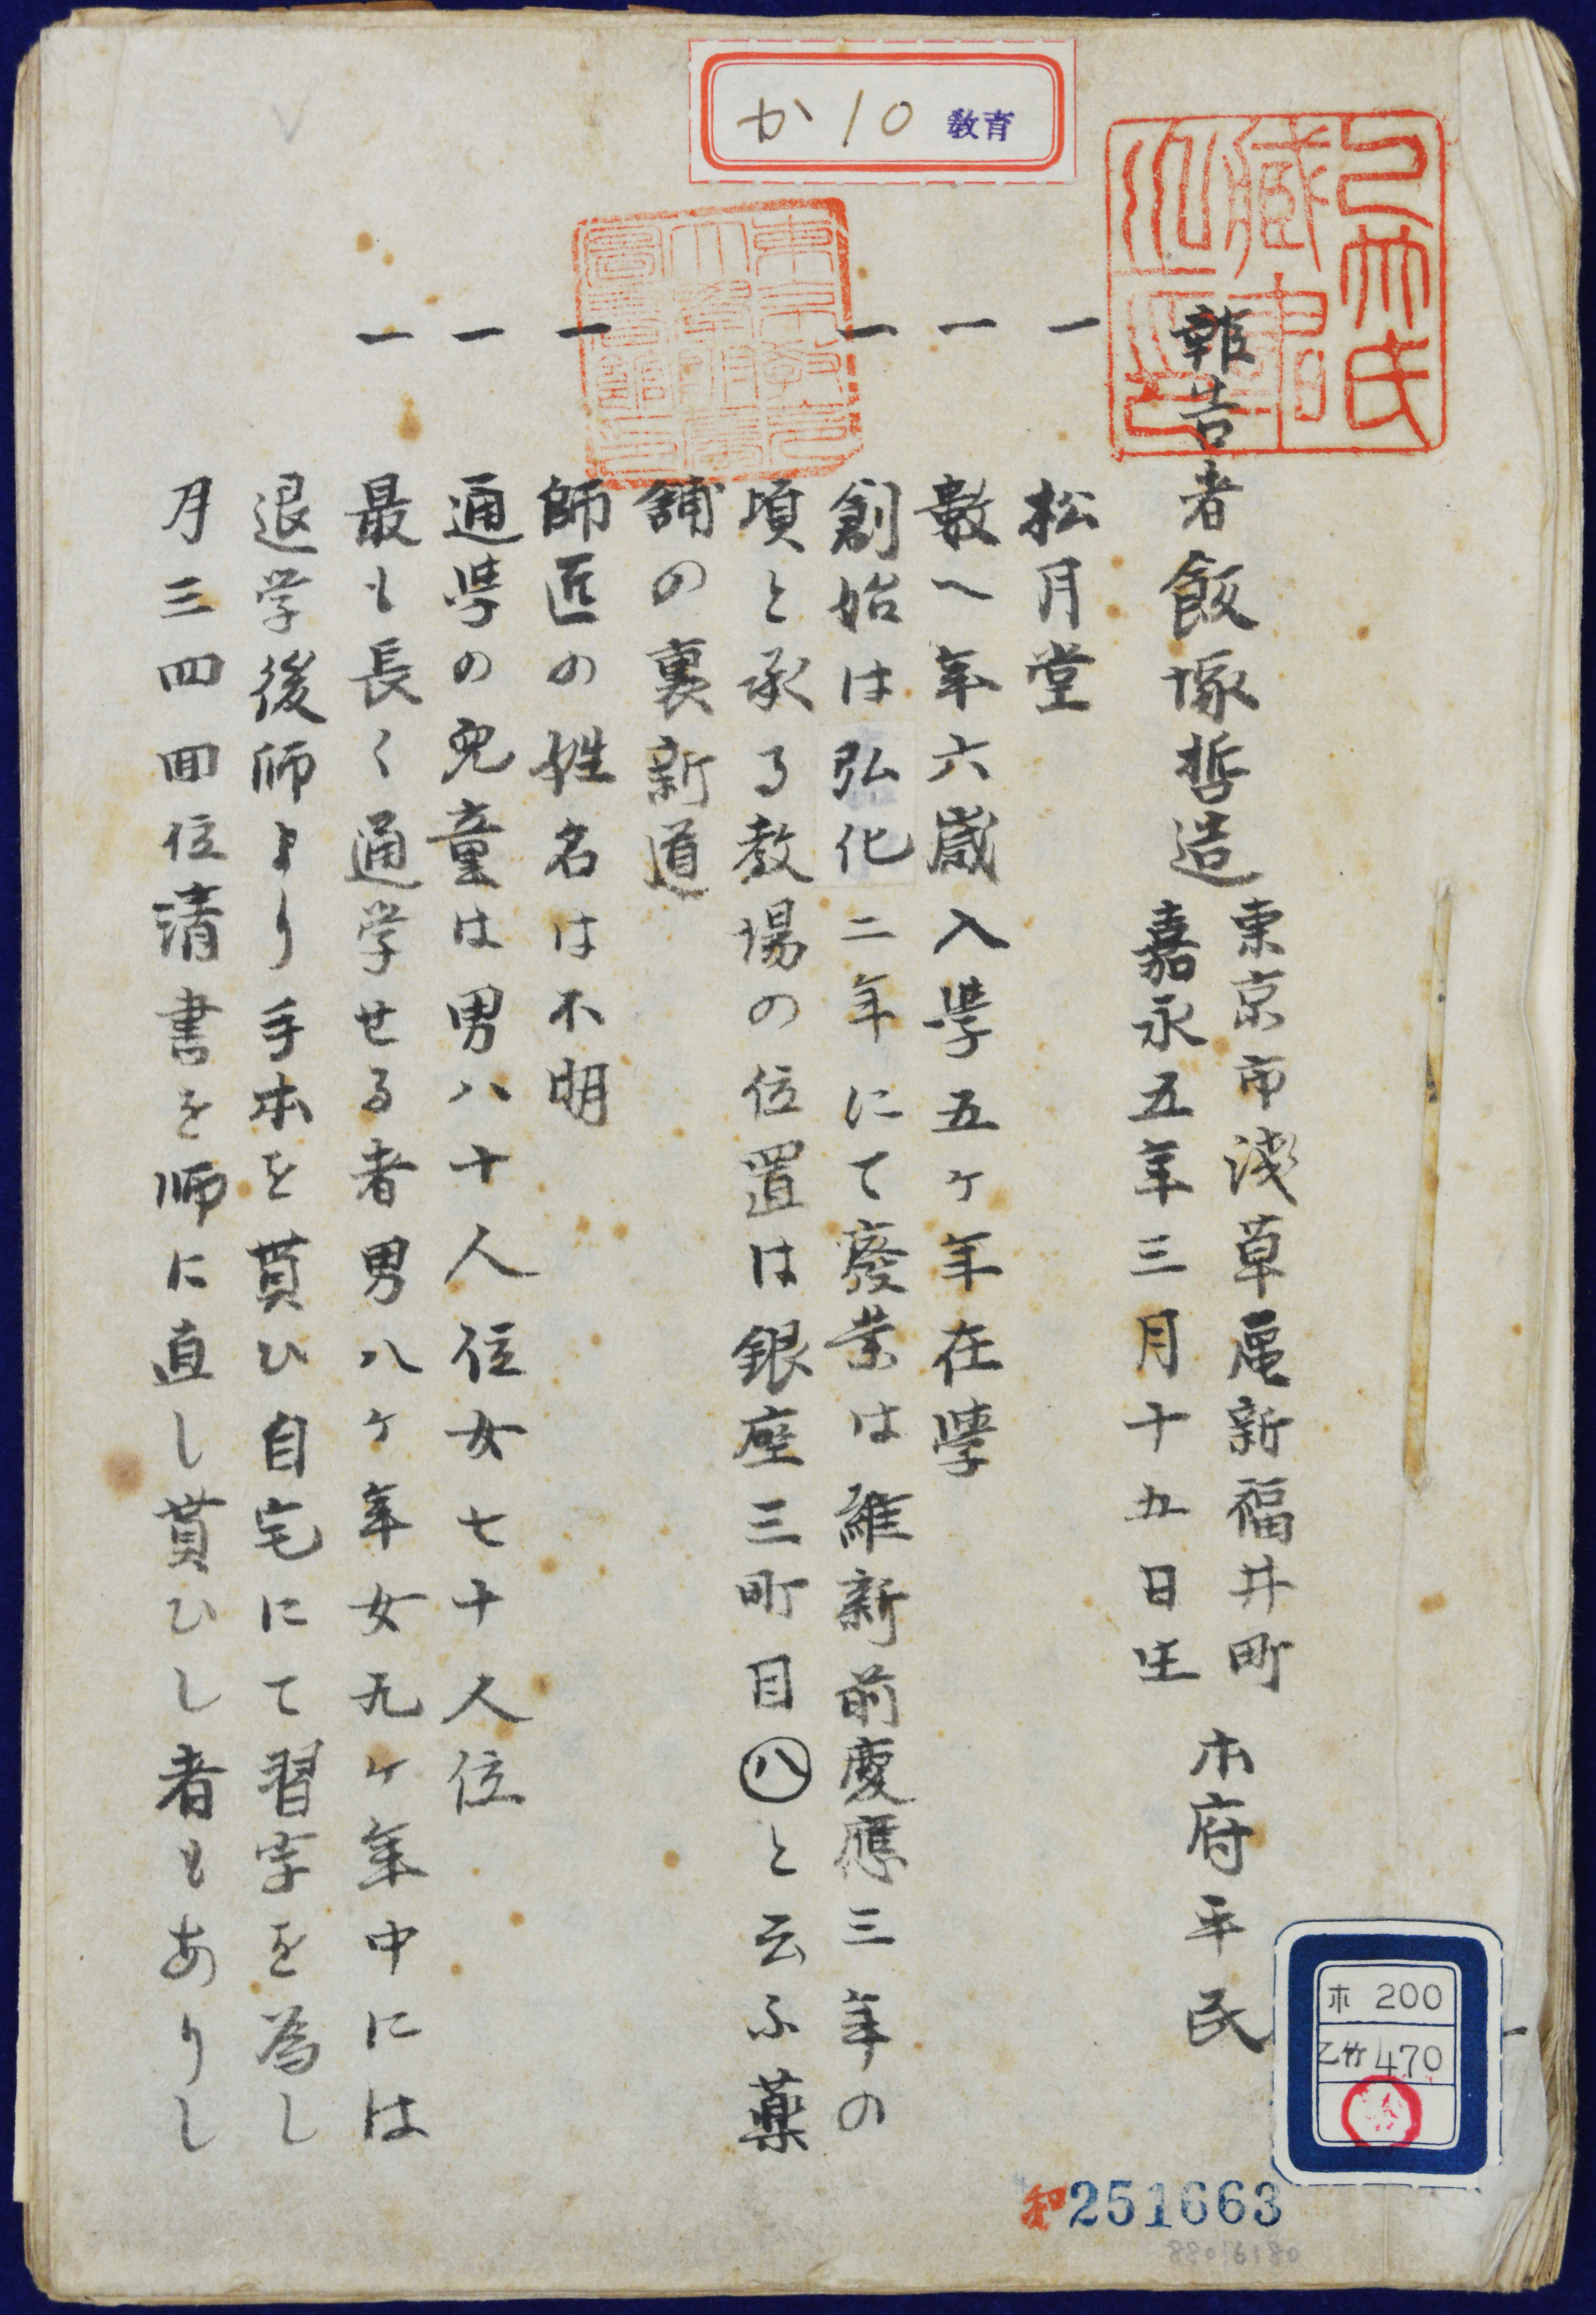 か10 教育
乙竹氏
藏書
之印
東京教育
大學附屬
圖書館印
報告者飯塚哲造
東京市浅草區新福井町
嘉永五年三月十五日生
本府平民
一 松月堂
一 数へ年六歳入學五ヶ年在學
一 創始は弘化二年にて廢業は維新前慶應三年の
頃と承る教場の位置は銀座三町目㊇と云ふ薬
舗の裏新道
一 師匠の姓名は不明
一 通學の児童は男八十人位女七十人位
一 最も長く通学せる者男八ヶ年女九ヶ年中には
退学後師より手本を貰ひ自宅にて習字を為し
月三四回位清書を師に直し貰ひし者もありし
ホ 200
乙竹 470
和251663